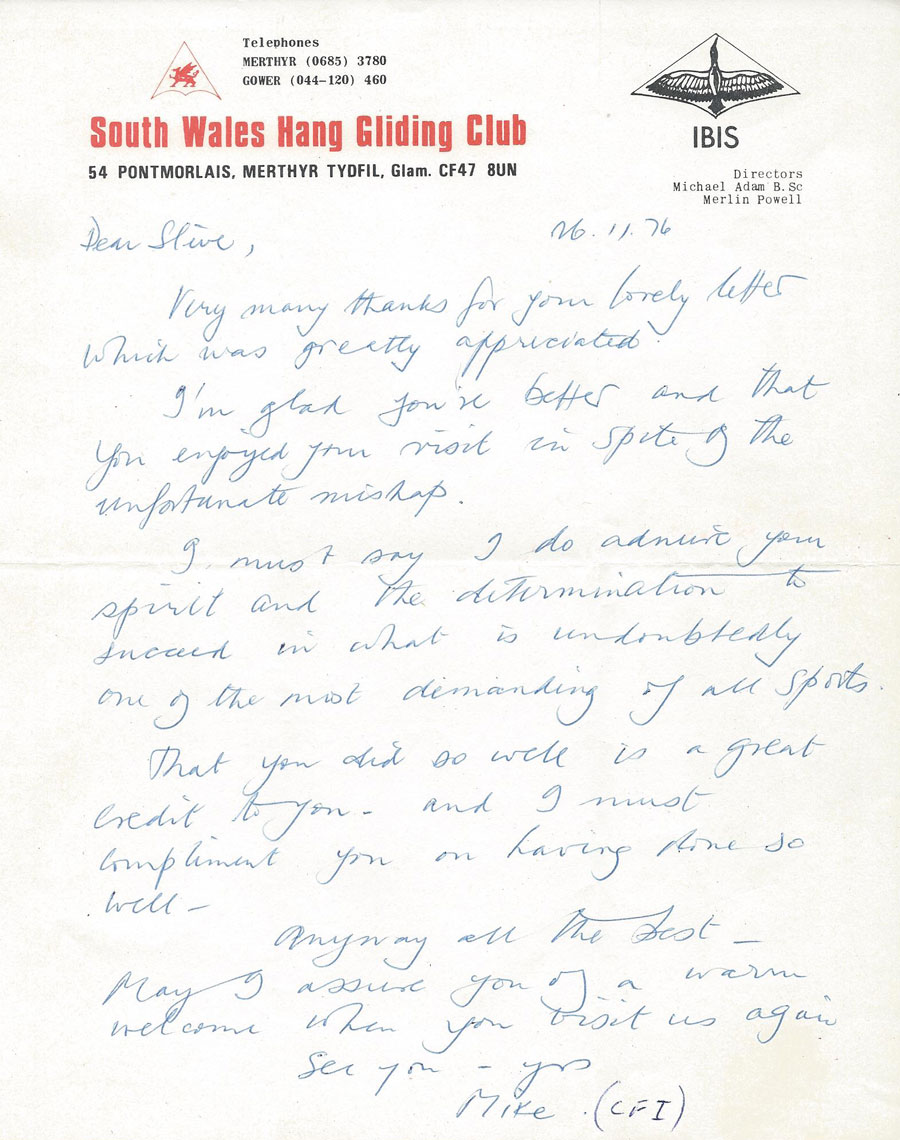 Telephones
MERTHYR (0685) 3780
GOWER (044-120) 460
South Wales Hang Gliding Club
54 PONTMORLAIS, MERTHYR TYDFIL, Glam. CF47 8UN
IBIS
Directors
Michael Adam B.Sc
Merlin Powell
26.11.76
Dear Steve,
Very many thanks for your lovely letter
which was greatly appreciated.
I'm glad you're better and that
you enjoyed your visit in spite of the
unfortunate mishap.
I must say I do admire your
spirit and the determination to
succeed in what is undoubtedly
one of the most demanding of all sports.
That you did so well is a great
credit to you - and I must
compliment you on having done so
well -
Anyway all the best -
May I assure you of a warm
welcome when you visit us again
See you - yrs
Mike (CFI)